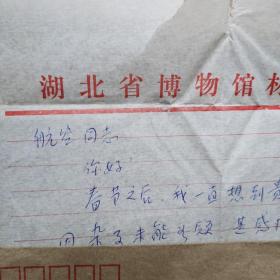 湖北省博物馆
航谷同志
你好
春节之后,我一直想到贵
因杂事未能如愿 甚感